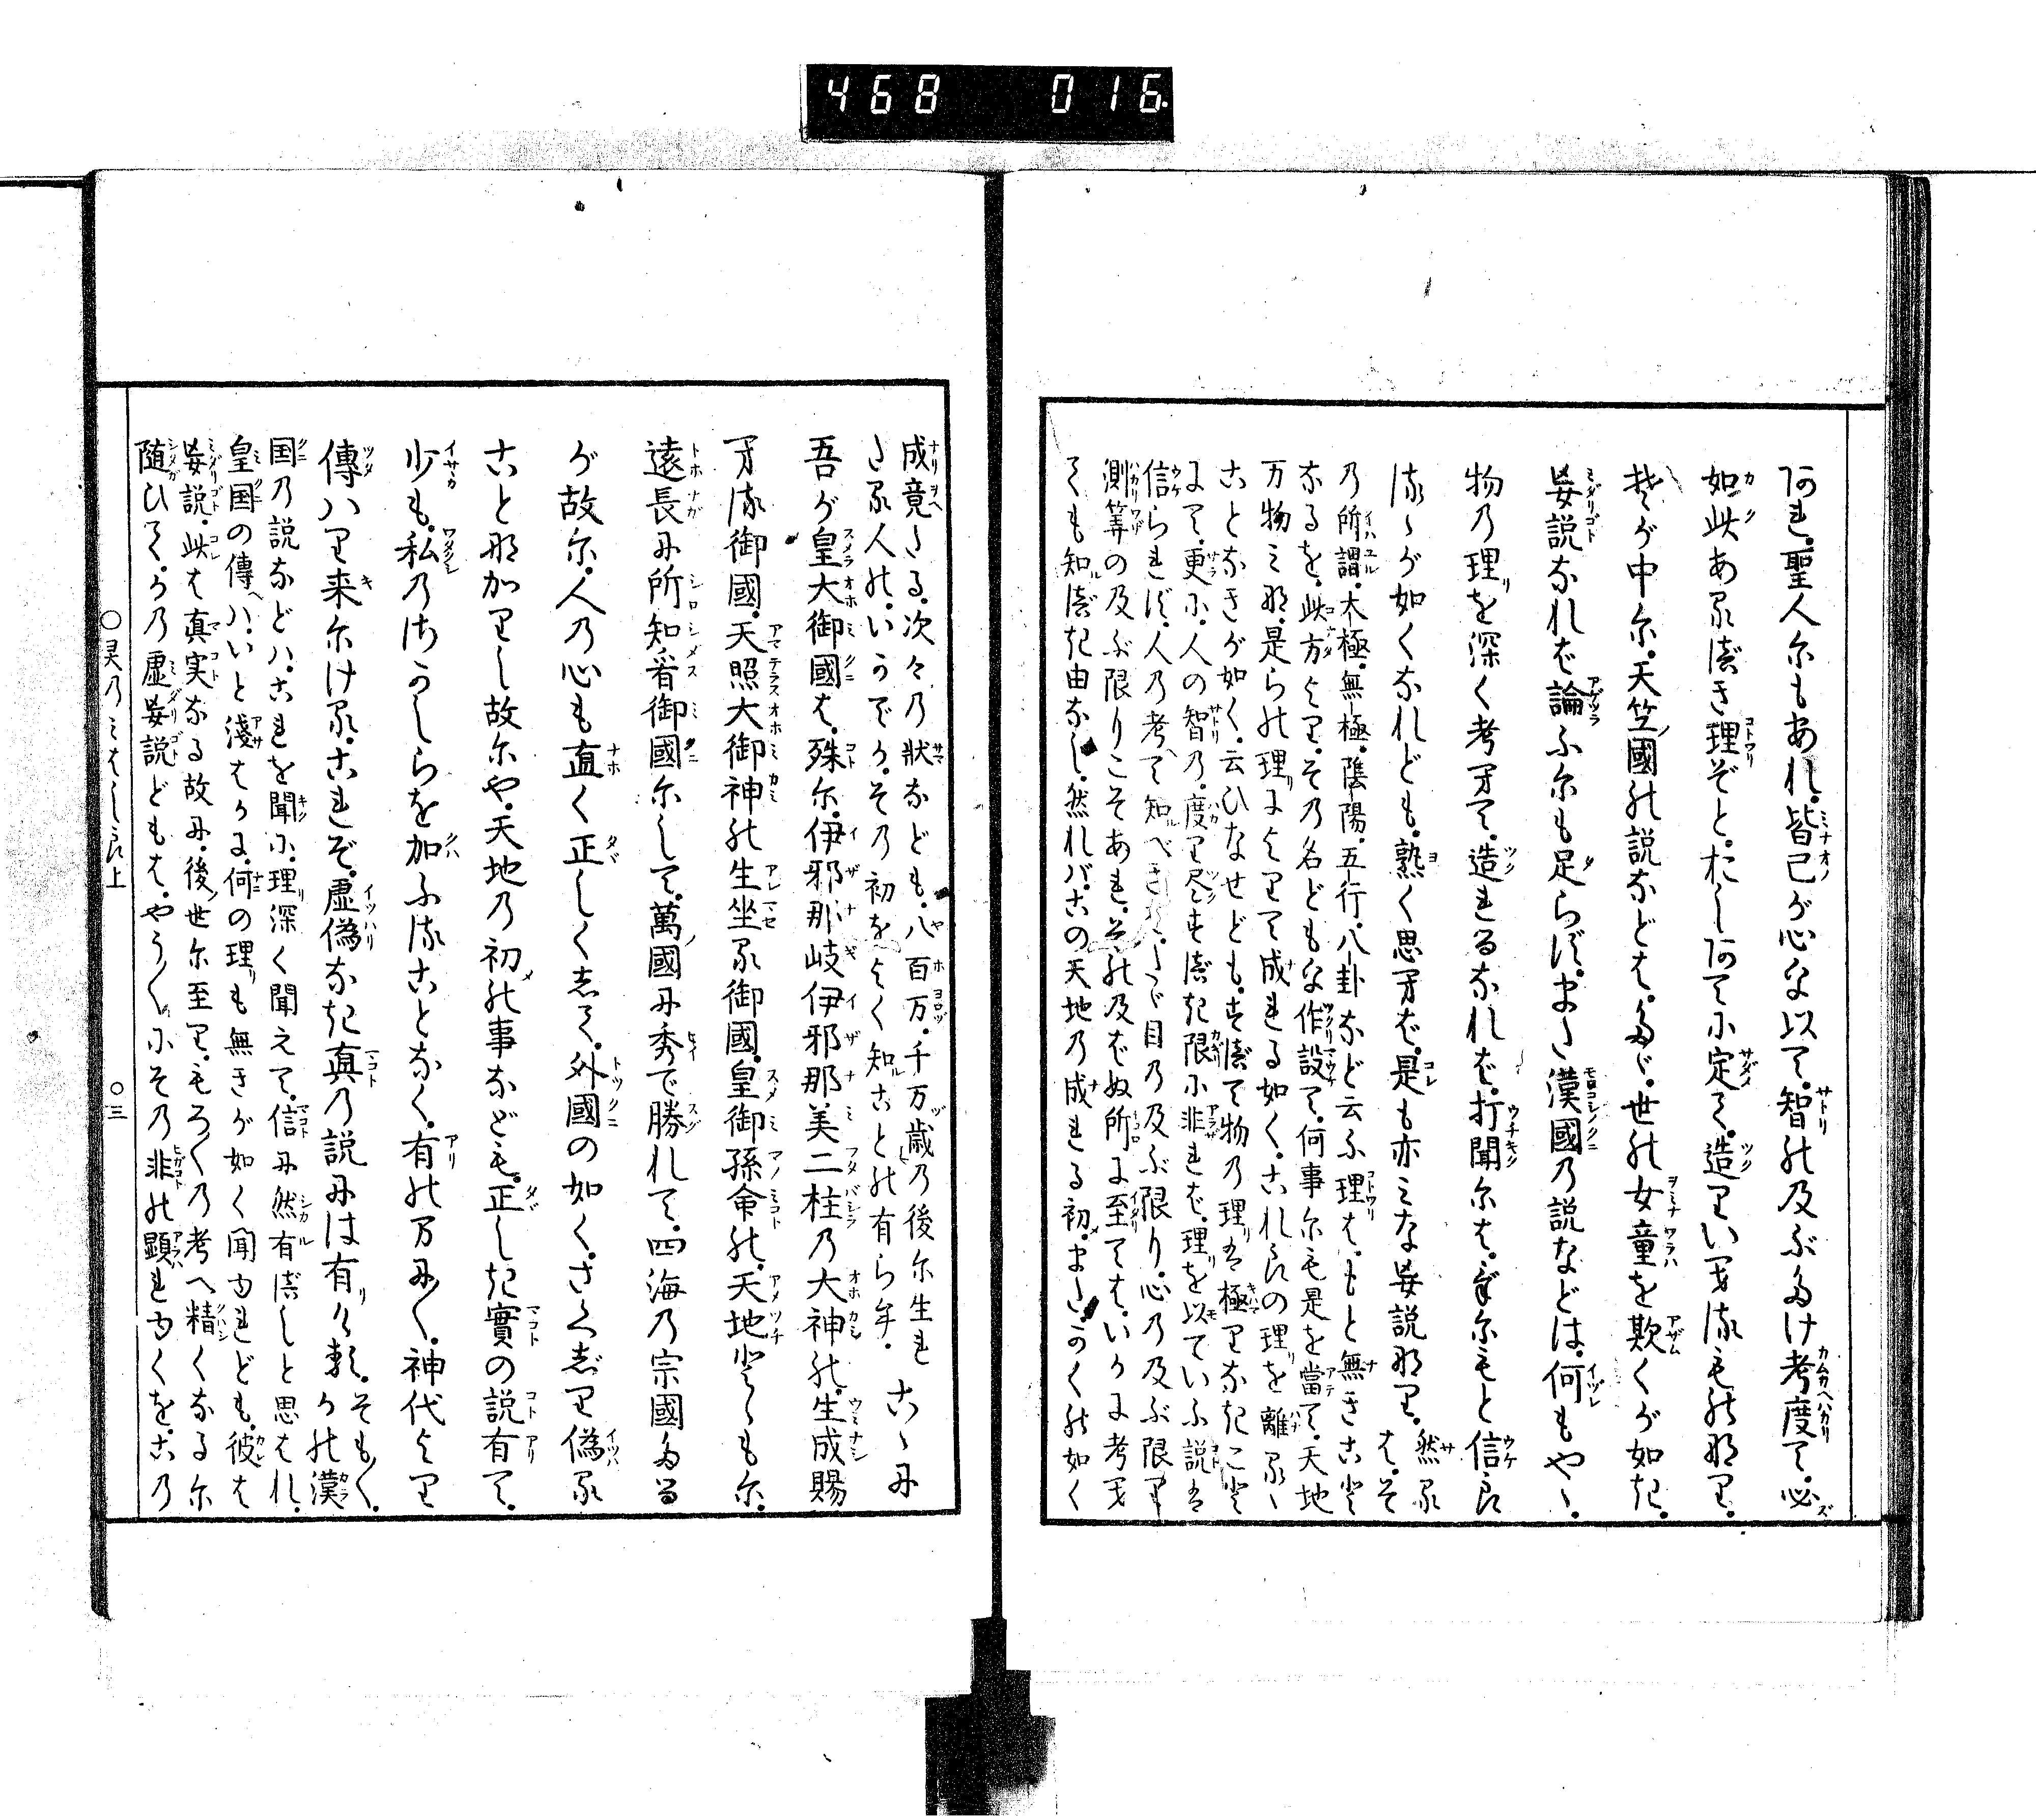 468 016.
阿れ。聖人尓もあれ。皆己が心な以て。智の及ぶ多け考度て。必
如此あるべき理ぞと。おし阿てに定て。造りいへるもの那り。
其が中尓。天竺國の説などは。多ゞ世の女童を欺くが如き。
妄説なれば論ふ尓も足らず。また漢國の説などは。何もやゝ
物乃理を深く考へて。造れるなれば。打聞尓は。げ尓もと信良
るゝが如くなれども。熟く思へば。是も亦みな妄説那り。然る
は。そ
乃所謂。太極。無極。陰陽。五行。八卦など云ふ理は。もと無きこと
なるを。此方より。その名どもな作設て。何事尓も是を當て。天地
万物みな。是らの理によりて成れる如く。これ良の理を離るゝ
ことなきが如く。云ひなせども。すべて物乃理は極りなきこと
にて。更に。人の智乃。度り尽すべき限に非れば。理を以ていふ説は
信られず。人乃考へて知べきは。たゞ目乃及ぶ限り。心乃及ぶ限り
測筭の及ぶ限りこそあれ。その及ばぬ所に至ては。いかに考へ
ても知べき由なし。然れバ。この天地乃成れる初。また。かくの如く
成竟たる。次々乃状なども。八百万。千万歳乃後尓生れ
たる人の。いかでか。その初をよく知ことの有らん。 こゝに
吾が皇大御國は。殊尓。伊邪那岐伊邪那美二柱乃大神の。生成賜
へる御國。天照大御神の生坐る御國。皇御孫命の。天地とゝも尓。
遠長に所知看御國尓して。萬國に秀で勝れて。四海乃宗國たる
が故尓。人乃心も直く正しくして。外國の如く。さくじり偽る
こと那かりし故尓や。天地乃初の事なども。正しき實の説有て。
少も。私乃さかしらを加ふることなく。有の万に〳〵。神代より
傳ハり来尓ける。これぞ。虚偽なき真乃説には有ける。そも〳〵。
かの漢
国乃説などハ。これを聞に。理深く聞えて。信に然有べしと思はれ。
皇国の傳ハ。いと淺はかに。何の理も無きが如く聞ゆれども。彼は
妄説。此は真実なる故に。後世尓至り。もろ〳〵乃考へ精くなる尓
随ひて。かの虚妄説どもは。やう〳〵にその非の顕れゆくを。この
〇灵乃みはしら上 〇三